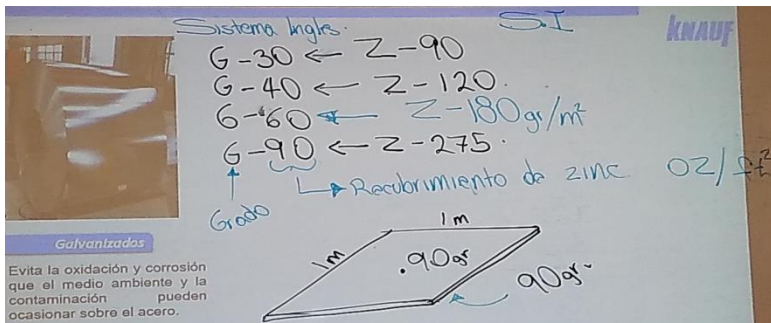 Sistema Ingles. S.I
KNAUF
G-30 ← Z-90
G-40 ← Z-120.
G-60 ← Z-180 gr/m²
G-90 ← Z-275.
Recubrimiento de zinc. OZ/ft²
Grado
1m
1m
.90gr
90gr.
Galvanizados
Evita la oxidación y corrosión
que el medio ambiente y la
contaminación pueden
ocasionar sobre el acero.